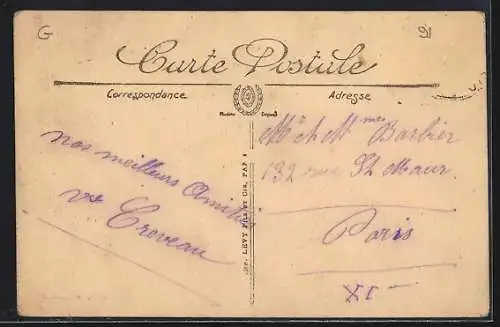 G
91
Carte Postale
Correspondance
Adresse
Modèle Déposé
Nos meilleurs Amitiés
Vve Creveau
LEVY Fils et Cie, PAR
Mr et Mmes Barbier
132 rue St Maur
Paris
XI